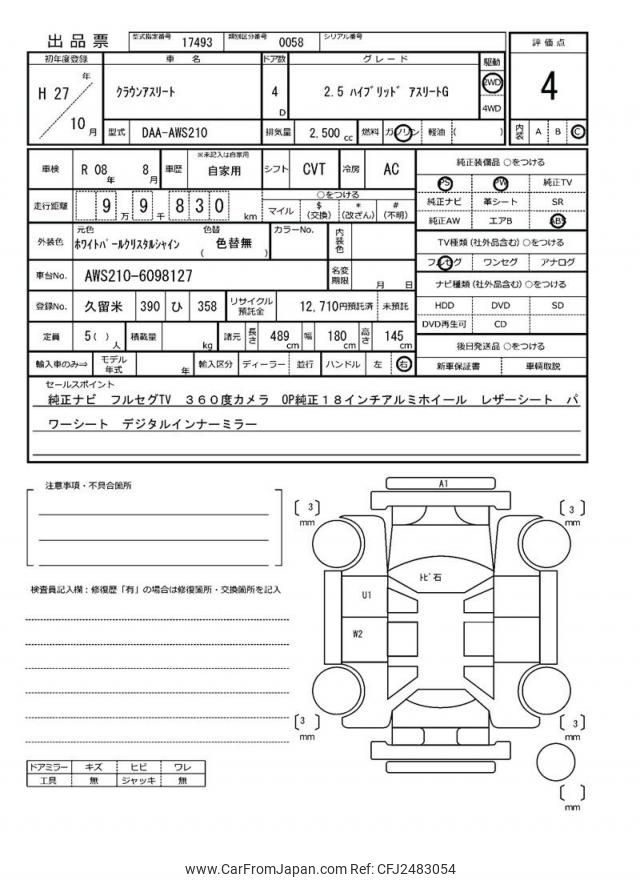 出品票 型式指定番号 17493 類別区分番号 0058 シリアル番号
初年度登録 車 名 ドア数 グレード 駆動 評価点
H 27 年 10 月 クラウンアスリート 4 D 2.5 ハイブリッド アスリートG 2WD 4WD 4
型式 DAA-AWS210 排気量 2,500 cc 燃料 ガソリン 軽油 ( ) 内装 A B C
車検 R 08 年 8 月 車歴 ※未記入は自家用 自家用 シフト CVT 冷房 AC
純正装備品 ○をつける
PS PW 純正TV
純正ナビ 革シート SR
純正AW エアB ABS
走行距離 9 9 8 3 0 万 千 km ○をつける マイル $ (交換) * (改ざん) # (不明)
TV種類 (社外品含む) ○をつける
フルセグ ワンセグ アナログ
外装色 元色 ホワイトパールクリスタルシャイン 色替 ( 色替無 ) カラーNo. 内装色
車台No. AWS210-6098127 名変期限 月 日
ナビ種類 (社外品含む) ○をつける
HDD DVD SD
DVD再生可 CD
登録No. 久留米 390 ひ 358 リサイクル預託金 12,710 円預託済 未預託
定員 5 ( ) 人 積載量 kg 諸元 長さ 489 cm 幅 180 cm 高さ 145 cm
後日発送品 ○をつける
新車保証書 車輌取説
輸入車のみ⇒ モデル年式 年 輸入区分 ディーラー 並行 ハンドル 左 右
セールスポイント
純正ナビ フルセグTV 360度カメラ OP純正18インチアルミホイール レザーシート パ
ワーシート デジタルインナーミラー
注意事項・不具合箇所
検査員記入欄:修復歴「有」の場合は修復箇所・交換箇所を記入
A1
[ 3 ] mm
[ 3 ] mm
トビ石
U1
W2
[ 3 ] mm
[ 3 ] mm
[ ] mm
ドアミラー キズ ヒビ ワレ
工具 無 ジャッキ 無
www.CarFromJapan.com Ref: CFJ2483054